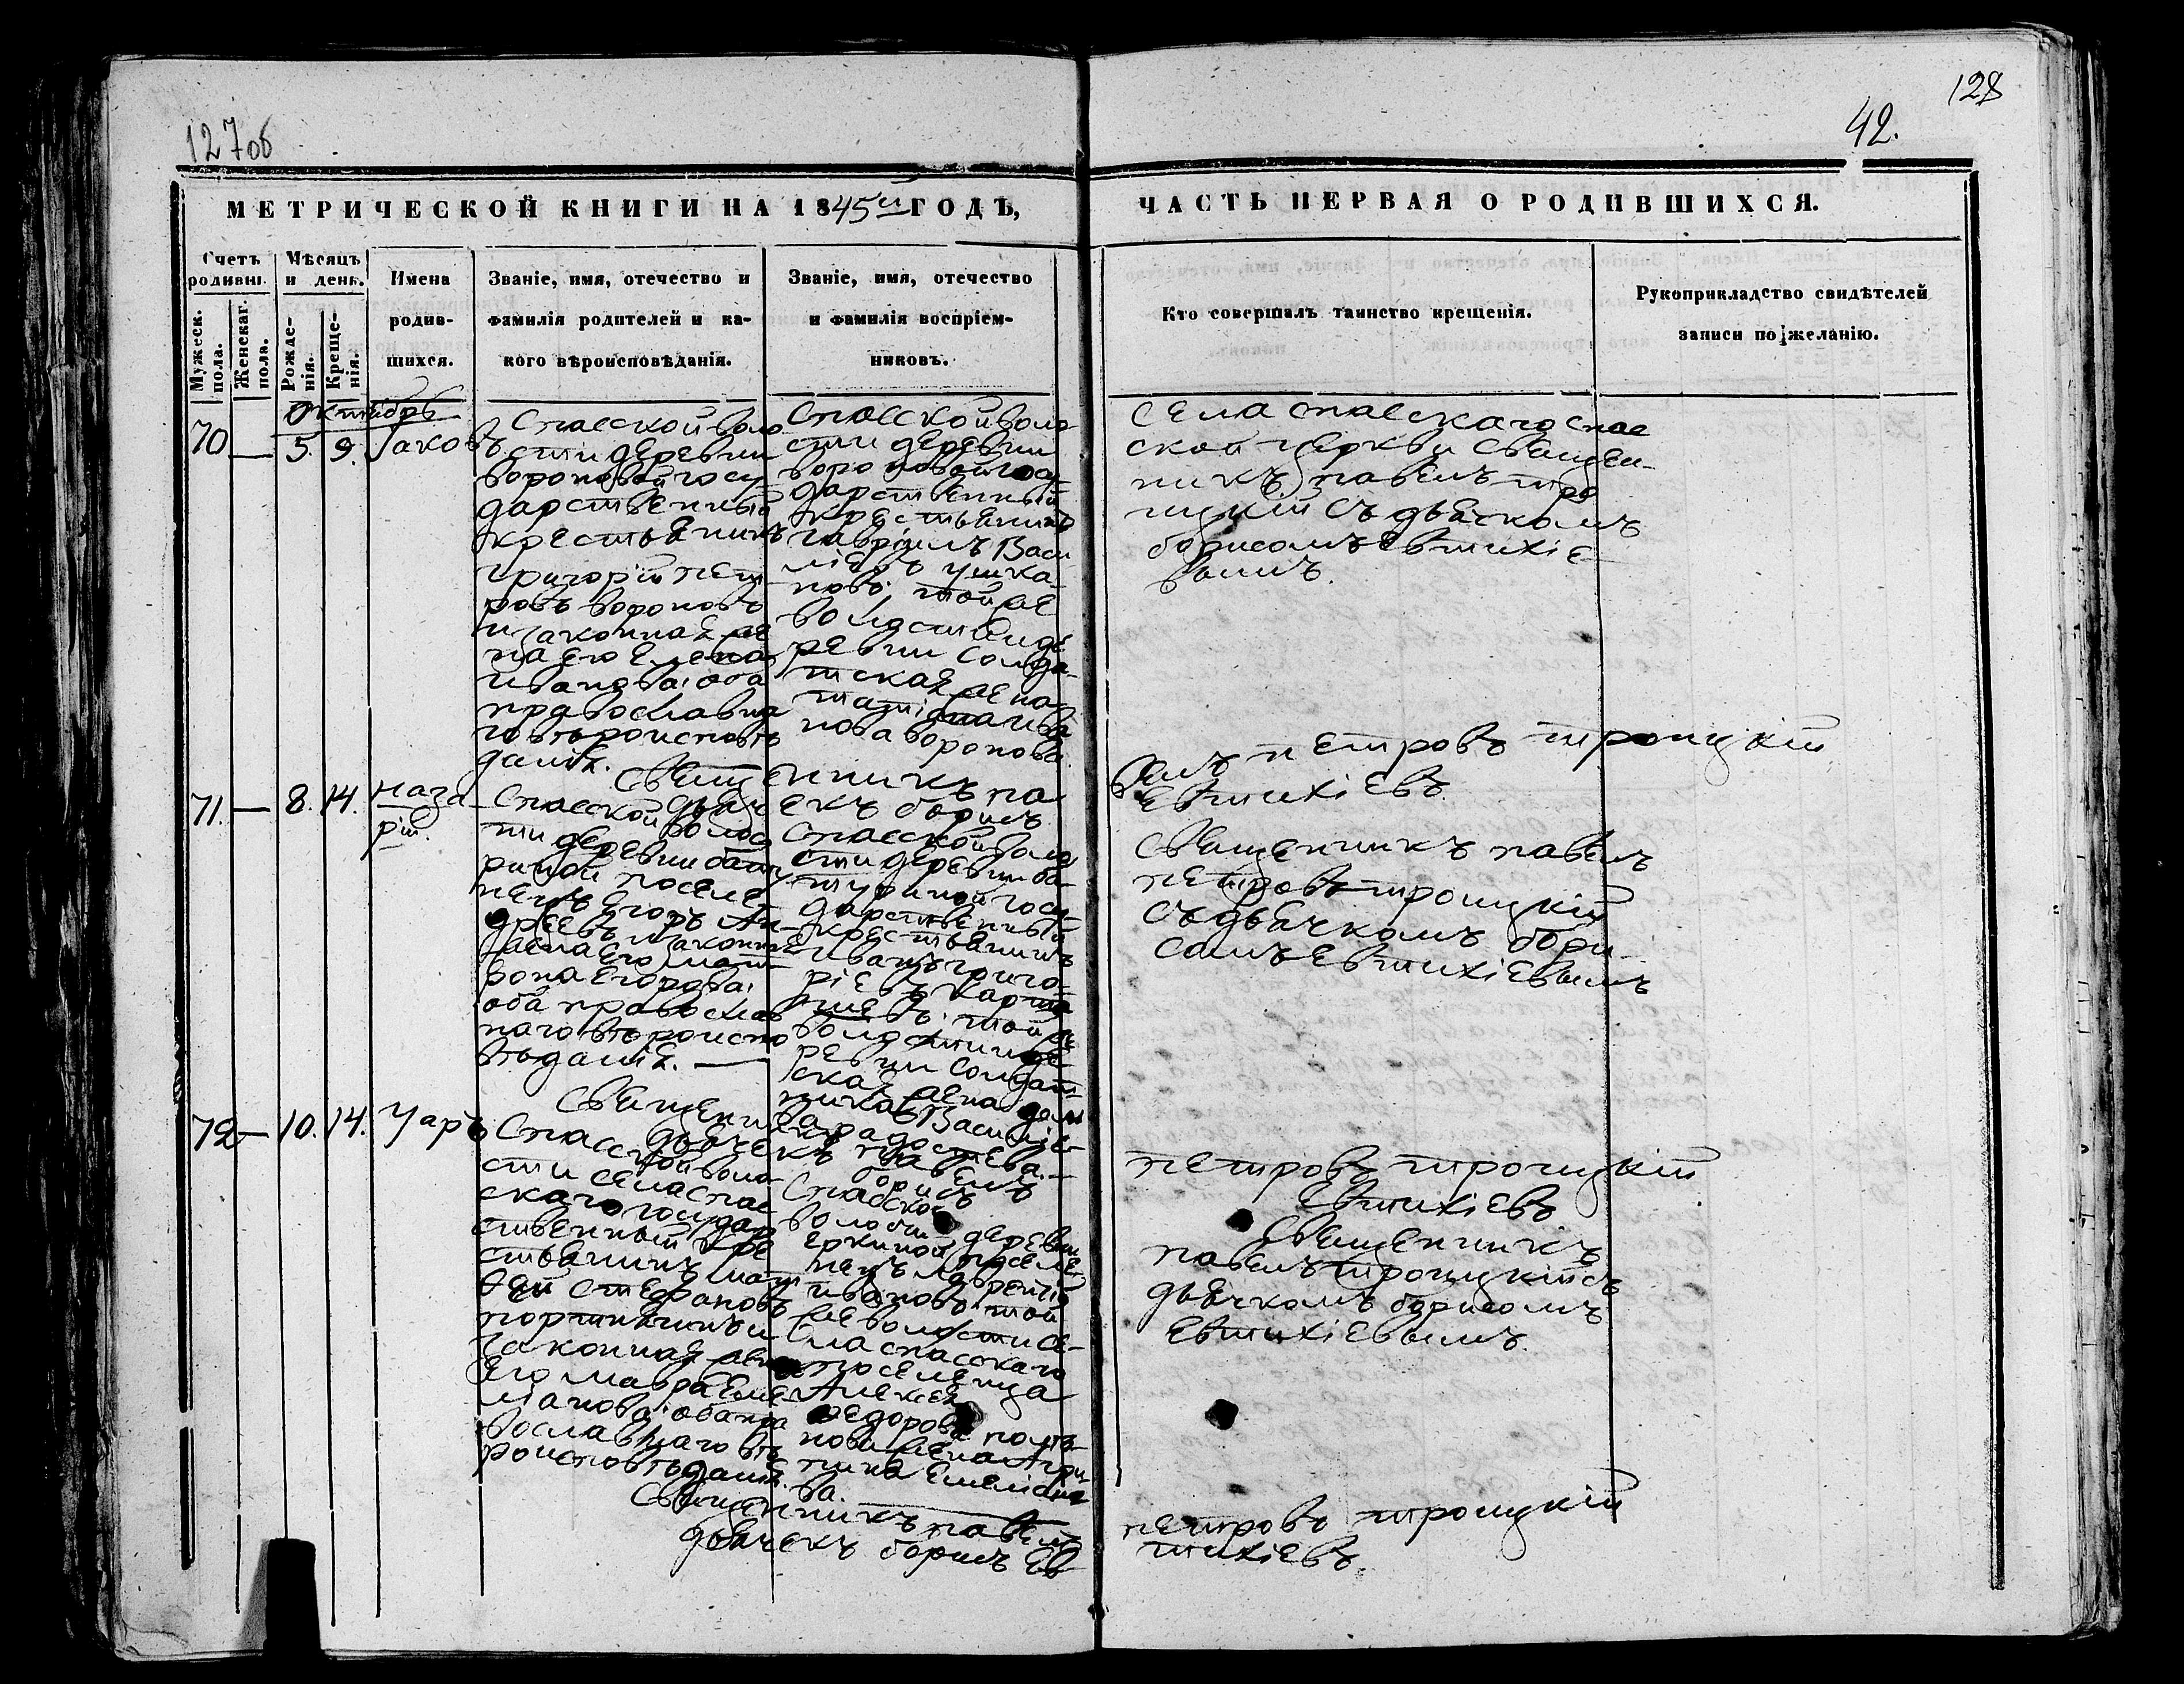 127об
128
42.
МЕТРИЧЕСКОЙ КНИГИ НА 1845й ГОДЪ,
ЧАСТЬ ПЕРВАЯ О РОДИВШИХСЯ.
Счетъ родивш.
Мужеск. пола.
Женскаг. пола.
Мѣсяцъ и день.
Рожде-
нія.
Креще-
нія.
Имена
родив-
шихся.
Званіе, имя, отечество и
фамилія родителей и ка-
кого вѣроисповѣданія.
Званіе, имя, отечество
и фамилія воспріем-
никовъ.
Кто совершалъ таинство крещенія.
Рукоприкладство свидѣтелей
записи по желанію.
Октябрь
70 — 5. 9. Іаковъ
Спасской воло
сти деревни
Вороновой госу
дарственный
крестьянинъ
григорій пет
ровъ вороновъ
и законная же
на его Елена
иванова: оба
православна
го вѣроисповѣ
данія.
Спасской воло
сти деревни
вороновой госу
дарственный
крестьянинъ
гавріилъ Васи
ліевъ ушка
новъ, той же
волости и де
ревни солда-
тская жена
татіана ива
нова воронова.
села спаскаго спас
ской церкви священ-
никъ павелъ тро
ицкій съ дьячкомъ
борисомъ Евтихіе
вымъ.
Священникъ павелъ петровъ троицкій
дьячекъ борисъ Евтихіевъ
71. — 8. 14. наза
рій.
Спасской волос
ти деревни бату
риной поселе
нецъ Егоръ Ан-
дреевъ и законная
жена его мат
рона Егорова:
оба православ
наго вѣроиспо
вѣданія. —
Спасской воло
сти деревни ба-
туриной госу-
дарственный
крестьянинъ
иванъ григо-
ріевъ
той же
волости и де
ревни солдат
ская жена
Василіе
ва
священникъ павелъ
петровъ троицкій
съ дьячкомъ бори-
сомъ Евтихіевымъ
Священникъ павелъ петровъ троицкій
дьячекъ борисъ Евтихіевъ
72 — 10. 14. Уаръ
Спасской воло-
сти села спас
скаго государ
ственный кре
стьянинъ мат
вей стефановъ
портнягинъ и
законная жена
его мавра Еме
лианова: оба пра
вославнаго вѣ
роисповѣданія.
Спасской
волости деревни
еркиной поселе
нецъ лаврентій
ивановъ: той
же волости се-
ла спасскаго
поселенца
Алексея
федорова
жена Агри
пина Емелиано
ва.
Священникъ
павелъ троицкій съ
дьячкомъ борисомъ
Евтихіевымъ.
Священникъ павелъ петровъ троицкій
дьячекъ борисъ Евтихіевъ.